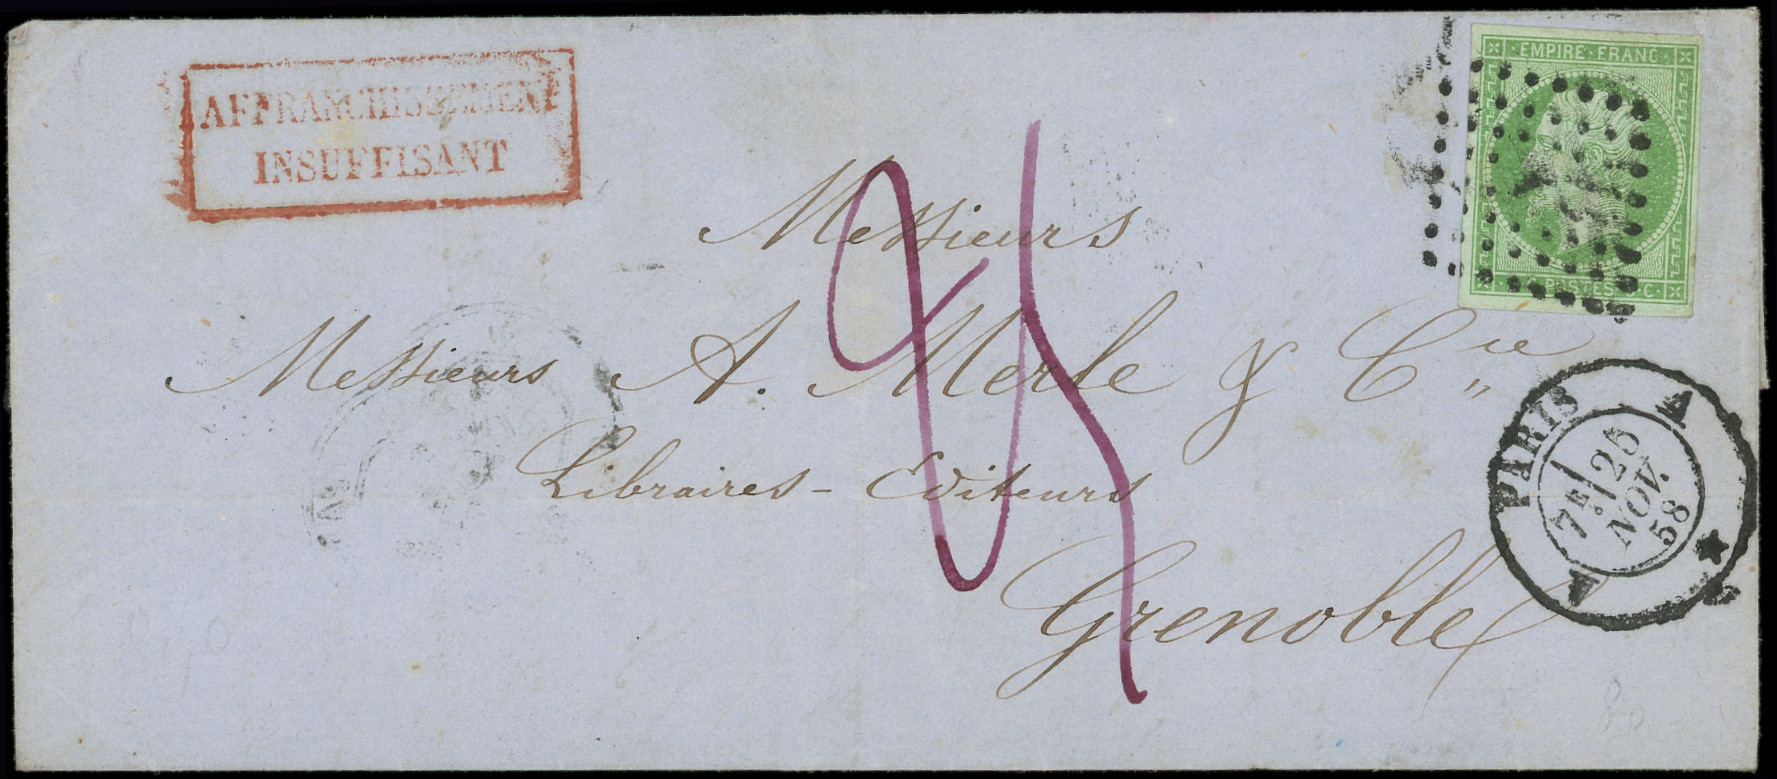 AFFRANCHISSEMENT
INSUFFISANT
EMPIRE · FRANC ·
POSTES C ·
Messieurs
Messieurs A. Merle & Cie
Libraires - Editeurs
Grenoble
PARIS A
7E
25
NOV.
58
A